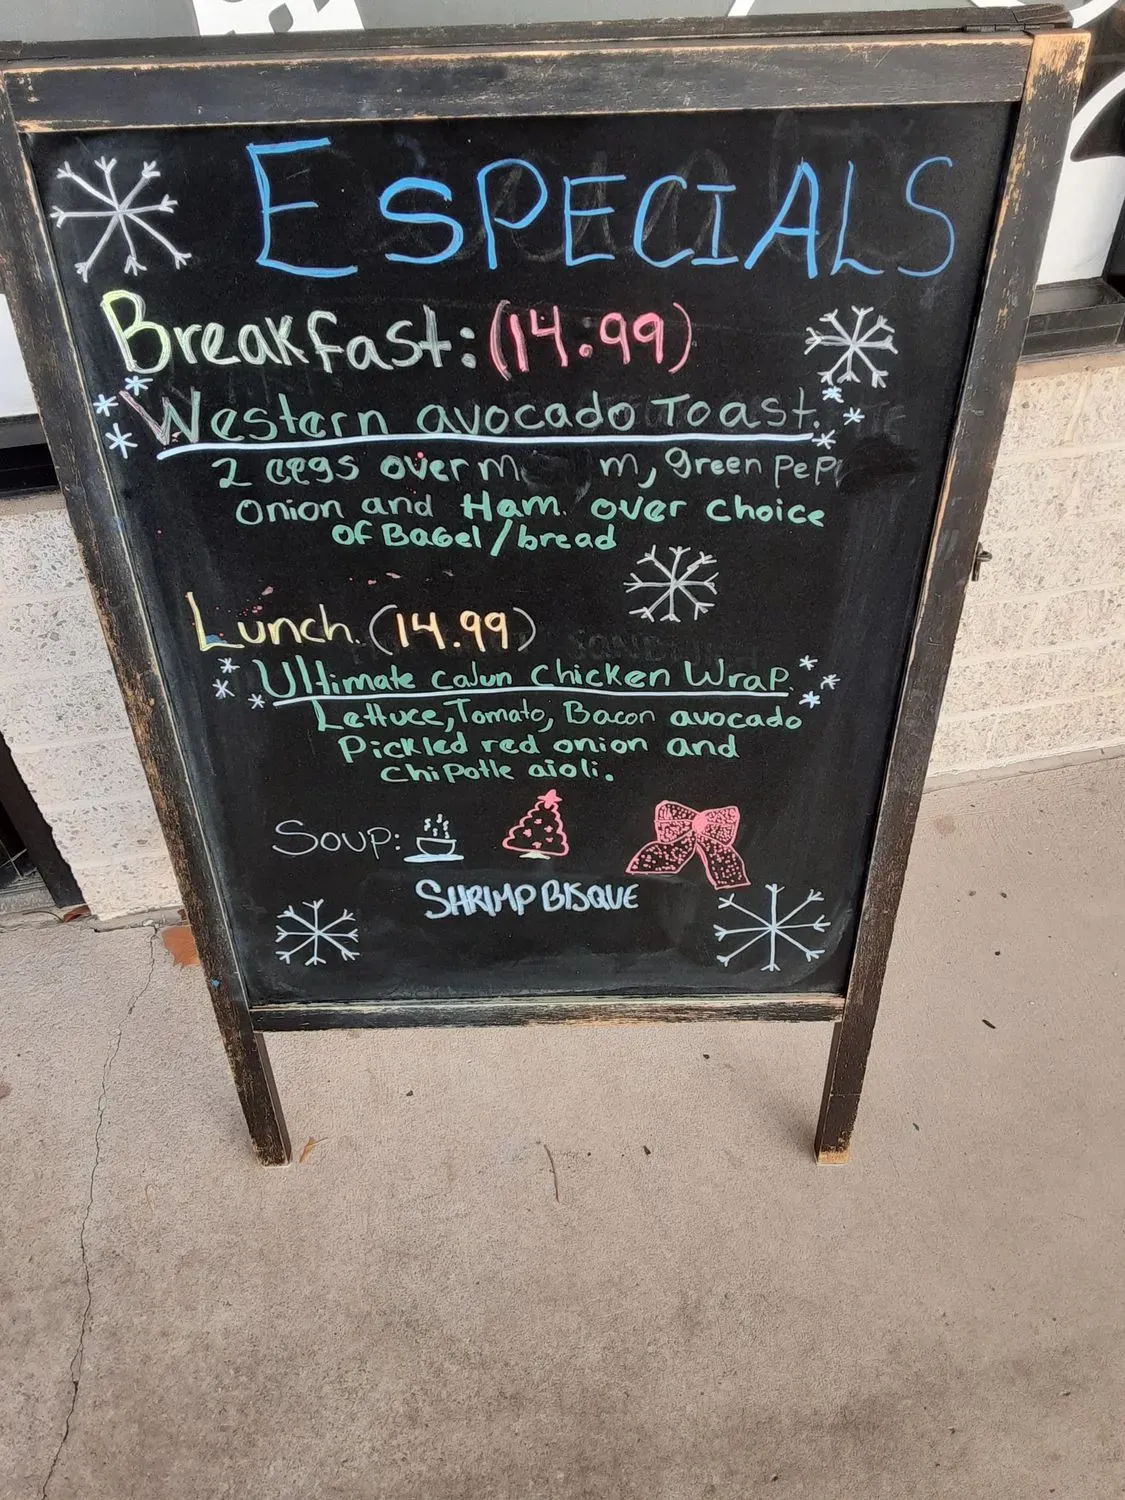 ESPECIALS
Breakfast: (14.99)
Western avocado Toast.
2 eggs over m m, green pep
onion and Ham. over choice
of Bagel/bread
Lunch. (14.99)
Ultimate cajun chicken Wrap.
Lettuce, Tomato, Bacon avocado
Pickled red onion and
chipotle aioli.
Soup:
SHRIMP BISQUE